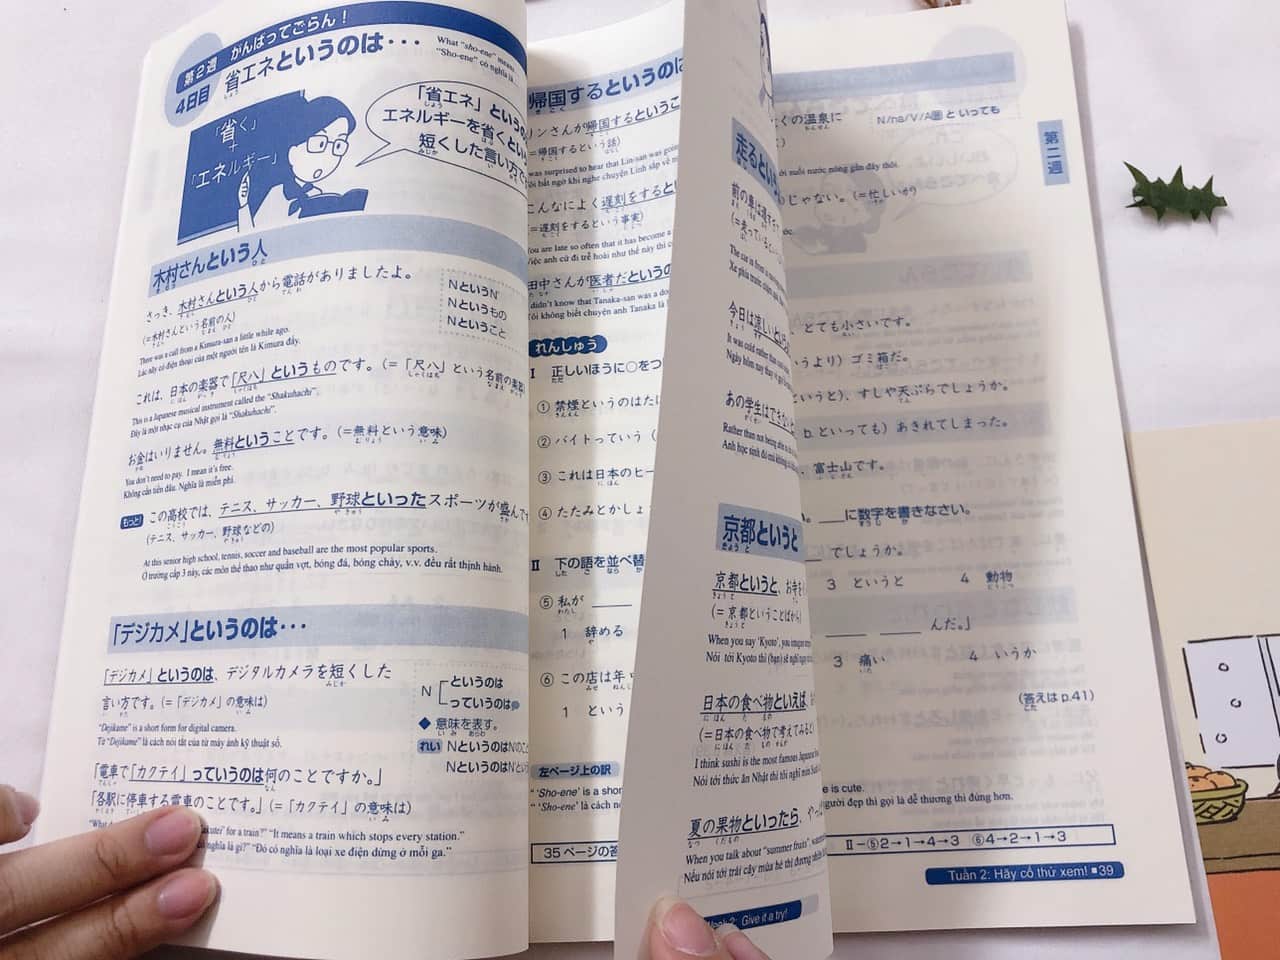 第2週 がんばってごらん!
4日目 省エネというのは・・・
What "sho-ene" means
"Sho-ene" có nghĩa là
「省く」
+
「エネルギー」
「省エネ」という
エネルギーを省くとい
短くした言い方で
木村さんという人
さっき、木村さんという人から電話がありましたよ。
(=木村さんという名前の人)
There was a call from a Kimura-san a little while ago.
Lúc nãy có điện thoại của một người tên là Kimura đấy.
NというN'
Nというもの
Nということ
これは、日本の楽器で「尺八」というものです。(=「尺八」という名前の楽器
This is a Japanese musical instrument called the "Shakuhachi".
Đây là một nhạc cụ của Nhật gọi là "Shakuhachi".
お金はいりません。無料ということです。(=無料という意味)
You don't need to pay. I mean it's free.
Không cần tiền đâu. Nghĩa là miễn phí.
もっと! この高校では、テニス、サッカー、野球といったスポーツが盛んです
(テニス、サッカー、野球などの)
At this senior high school, tennis, soccer and baseball are the most popular sports.
Ở trường cấp 3 này, các môn thể thao như quần vợt, bóng đá, bóng chày, v.v. đều rất thịnh hành.
「デジカメ」というのは・・・
「デジカメ」というのは、デジタルカメラを短くした
言い方です。(=「デジカメ」の意味は)
"Dejikame" is a short form for digital camera.
Từ "Dejikame" là cách nói tắt của từ máy ảnh kỹ thuật số.
N というのは
っていうのは
◆ 意味を表す。
れい NというのはN'のこと
NというのはN'とい
「電車で「カクテイ」っていうのは何のことですか。」
「各駅に停車する電車のことです。」(=「カクテイ」の意味は)
"What d
akutei' for a train?" "It means a train which stops every station."
nghĩa là gì?" "Đó có nghĩa là loại xe điện dừng ở mỗi ga."
帰国するというのは
リンさんが帰国するというこ
(=帰国するという話)
was surprised to hear that Lin-san was going
Tôi bất ngờ khi nghe chuyện Linh sắp về n
こんなによく遅刻をすると
(=遅刻をするという事実)
You are late so often that it has become a
Việc anh cứ đi trễ hoài như thế này thì c
田中さんが医者だというの
didn't know that Tanaka-san was a do
Tôi không biết chuyện anh Tanaka là
れんしゅう
I 正しいほうに○をつ
① 禁煙というのはた
② バイトっていう(
③ これは日本のヒー
④ たたみとかしょ
II 下の語を並べ替
⑤ 私が ____
1 辞める
⑥ この店は年中
1 という
左ページ上の訳
"'Sho-ene' is a shor
"'Sho-ene' là cách nó
35ページの答
走るとい
前の車は
(=走っているとい
The car in front is
Xe phía trước
今日は涼しいとい
It was cold rather than
Ngày hôm nay thay vì gọi
あの学生はできない
Rather than not being able to
Anh học sinh đó mà không
京都というと
京都というと、お寺を
(=京都ということばから)
When you say 'Kyoto', you imagine
Nói tới Kyoto thì (bạn) sẽ nghĩ ngay
日本の食べ物といえば、
(=日本の食べ物で考えてみると)
I think sushi is the most famous Japanese
Nói tới thức ăn Nhật thì tôi nghĩ món
夏の果物といったら、
When you talk about "summer fruits",
Nếu nói tới trái cây mùa hè thì đương nhiên
Week 2: Give it a try!
くの温泉に
N/na/V/A普 といっても
第二週
ới suối nước nóng gần đây thôi.
じゃない。(=忙しいが)
とても小さいです。
うより) ゴミ箱だ。
というと)、すしや天ぷらでしょうか。
b といっても) あきれてしまった。
、富士山です。
。___に数字を書きなさい。
でしょうか。
3 というと 4 動物
____ ____ んだ。」
3 痛い 4 いうか
(答えは p.41)
e is cute.
người đẹp thì gọi là dễ thương thì đúng hơn.
II-⑤2→1→4→3 ⑥4→2→1→3
Tuần 2: Hãy cố thử xem! ■ 39